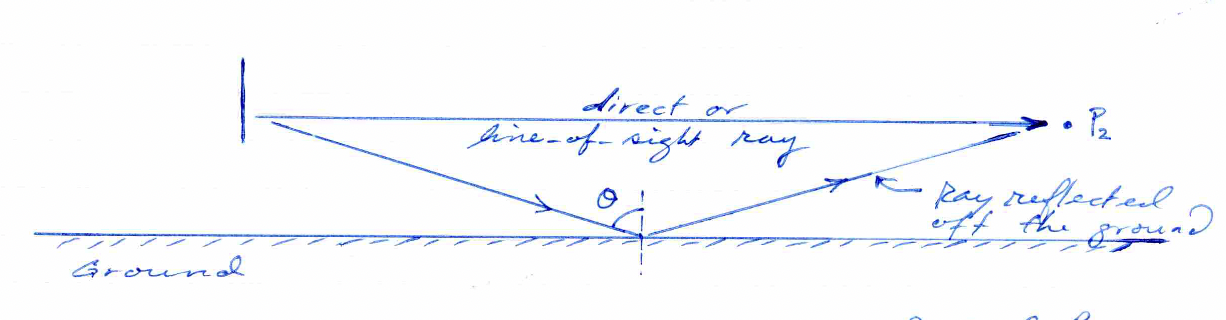 direct or
line-of-sight ray
P2
θ
Ray reflected
off the ground
Ground